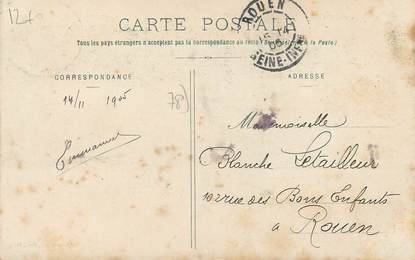 12+
CARTE POSTALE
Tous les pays étrangers n'acceptent pas la correspondance au recto (Se renseigner à la Poste)
ROUEN
SEINE-INFRE
CORRESPONDANCE
ADRESSE
14/11 1905
78)
Emmanuel
Mademoiselle
Blanche Letailleur
102 rue des Bons Enfants
à Rouen